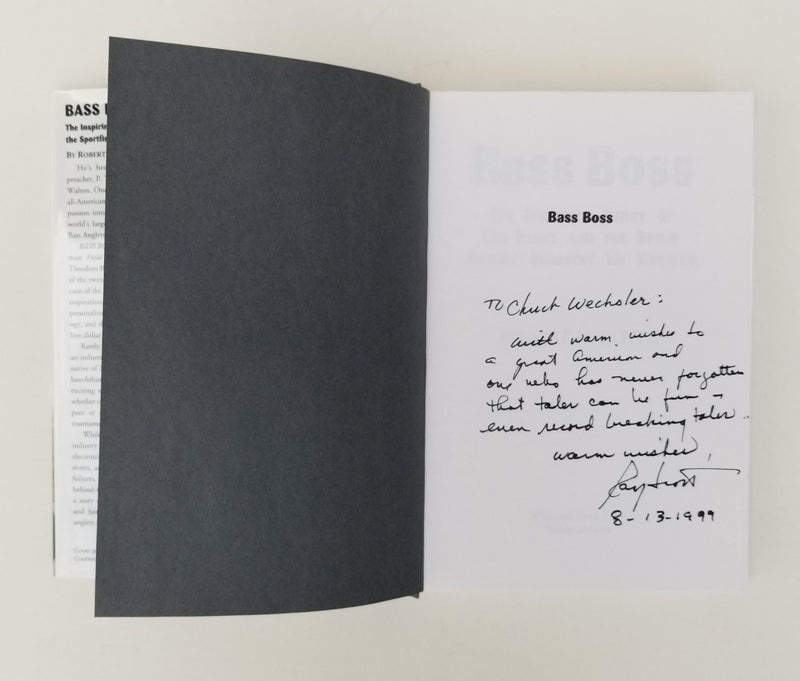 BASS
The Inspirin
the Sportfis
BY ROBERT
He's bee
preacher, P.
Walton. One
all-American
passion into
world's larg
Bass Anglers
BASS BO
man Field
Theodore R
of the twe
cess of the
inspiration
personaliti
ogy, and th
lion dollar
Rarely
an industr
native of
bass fishin
exciting a
whether
pant or
tournamen
While
industry
electroni
stores, a
failures,
behind-
a story
and fai
anglers
Cover
Courtes
Bass Boss
To Chuck Wechsler:
with warm wishes to
a great American and
one who has never forgotten
that tales can be fun -
even record breaking tales..
warm wishes,
Ray Scott
8-13-1999